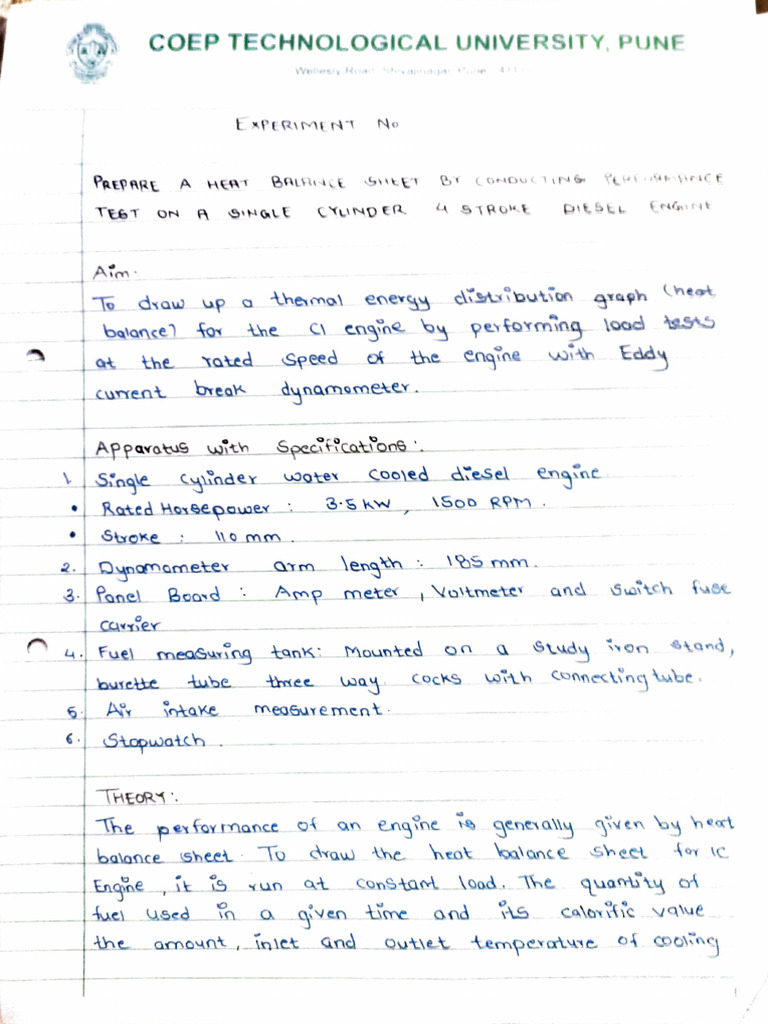 COEP TECHNOLOGICAL UNIVERSITY, PUNE
Wellesly Road, Shivajinagar, Pune
EXPERIMENT No
PREPARE A HEAT BALANCE SHEET BY CONDUCTING PERFORMANCE
TEST ON A SINGLE CYLINDER 4 STROKE DIESEL ENGINE
Aim:
To draw up a thermal energy distribution graph (heat
balance) for the CI engine by performing load tests
at the rated speed of the engine with Eddy
current break dynamometer.
Apparatus with Specifications:
1. Single cylinder water cooled diesel engine
• Rated Horsepower : 3.5 kW, 1500 RPM.
• Stroke : 110 mm.
2. Dynamometer arm length : 185 mm.
3. Panel Board : Amp meter, Voltmeter and switch fuse
carrier
4. Fuel measuring tank: Mounted on a study iron stand,
burette tube three way cocks with connecting tube.
5. Air intake measurement.
6. Stopwatch.
THEORY:
The performance of an engine is generally given by heat
balance sheet. To draw the heat balance sheet for IC
Engine, it is run at constant load. The quantity of
fuel used in a given time and its calorific value
the amount, inlet and outlet temperature of cooling
1